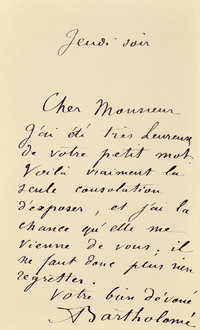 Jeudi soir
Cher Monsieur
J'ai été très heureux
de votre petit mot.
Voilà vraiment la
seule consolation
d'exposer, et j'ai la
chance qu'elle me
vienne de vous; il
ne faut donc plus rien
regretter.
Votre bien dévoué
ABartholomé